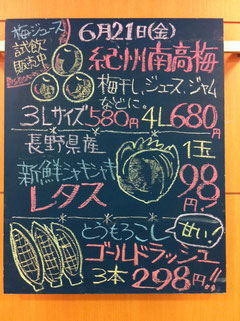 梅ジュース
試飲
販売中
6月21日(金)
紀州南高梅
梅干し、ジュース、ジャム
などに。
3Lサイズ580円 4L680円
長野県産
新鮮シャキシャキ
レタス
1玉
98円!
とうもろこし
甘い!
ゴールドラッシュ
3本 298円!!